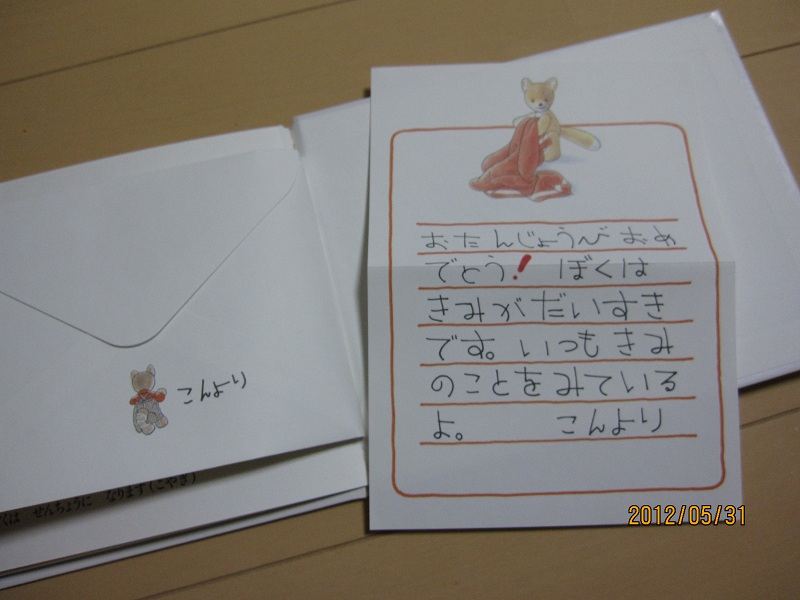 おたんじょうびおめ
でとう！ ぼくは
きみがだいすき
です。いつもきみ
のことをみている
よ。 こんより
こんより
くは せんちょうに なります(こやぎ)
2012/05/31